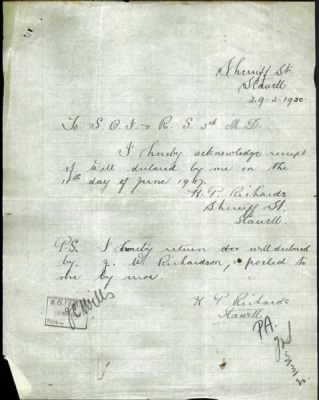 Sherriff St.
Stawell
29-2-1920
To S.O.I. & R.S. 3rd M.D.
I hereby acknowledge receipt
of will declared by me on the
11th day of June 1917.
H. P. Richards
Sherriff St.
Stawell.
P.S. I hereby return the will declared
by J. W. Richardson, posted to
me by
H P Richards
Stawell
Wills
P.A.